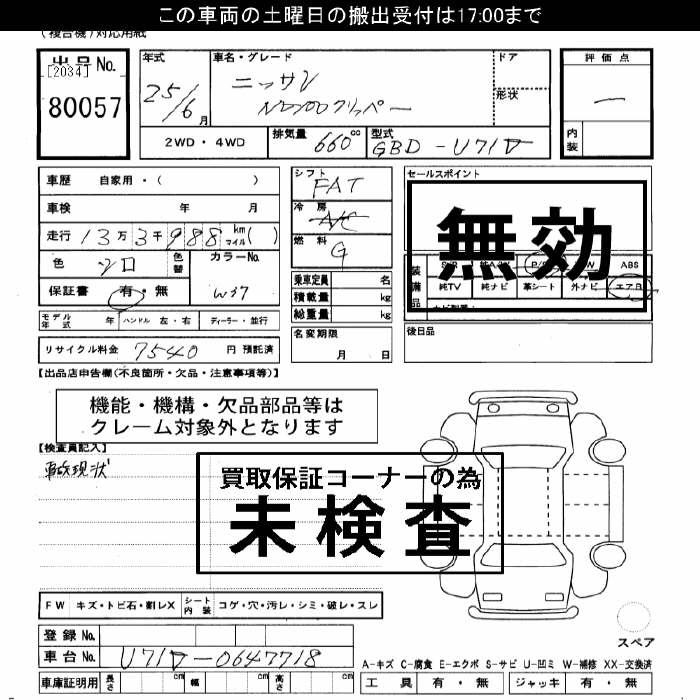 この車両の土曜日の搬出受付は17:00まで
(複合機)対応用紙
出品 No.
[2034]
80057
年式
25/6月
車名・グレード
ニッサン
NV100クリッパー
ドア
形状
評価点
一
内装
2WD・4WD
排気量 660 cc
型式 GBD-U71V
車歴 自家用・( )
車検 年 月
走行 13万3千988 km マイル ( )
色 シロ
色替
カラーNo. W37
保証書 有・無
シフト FAT
冷房 A/C
燃料 G
乗車定員 名
積載量 kg
総重量 kg
セールスポイント
無効
装備品
P/S ABS
純TV 純ナビ 革シート 外ナビ エアB
モデル年式 年 ハンドル 左・右 ディーラー・並行
名変期限
月 日
後日品
リサイクル料金 7540 円 預託済
【出品店申告欄(不良箇所・欠品・注意事項等)】
機能・機構・欠品部品等は
クレーム対象外となります
【検査員記入】
事故現状
買取保証コーナーの為
未検査
FW キズ・トビ石・割レX シート内装 コゲ・穴・汚レ・シミ・破レ・スレ
スペア
登録 No.
車台 No. U71V-0647718
A-キズ C-腐食 E-エクボ S-サビ U-凹ミ W-補修 XX-交換済
車庫証明用 長さ cm 幅 cm 高さ cm
工具 有・無 ジャッキ 有・無